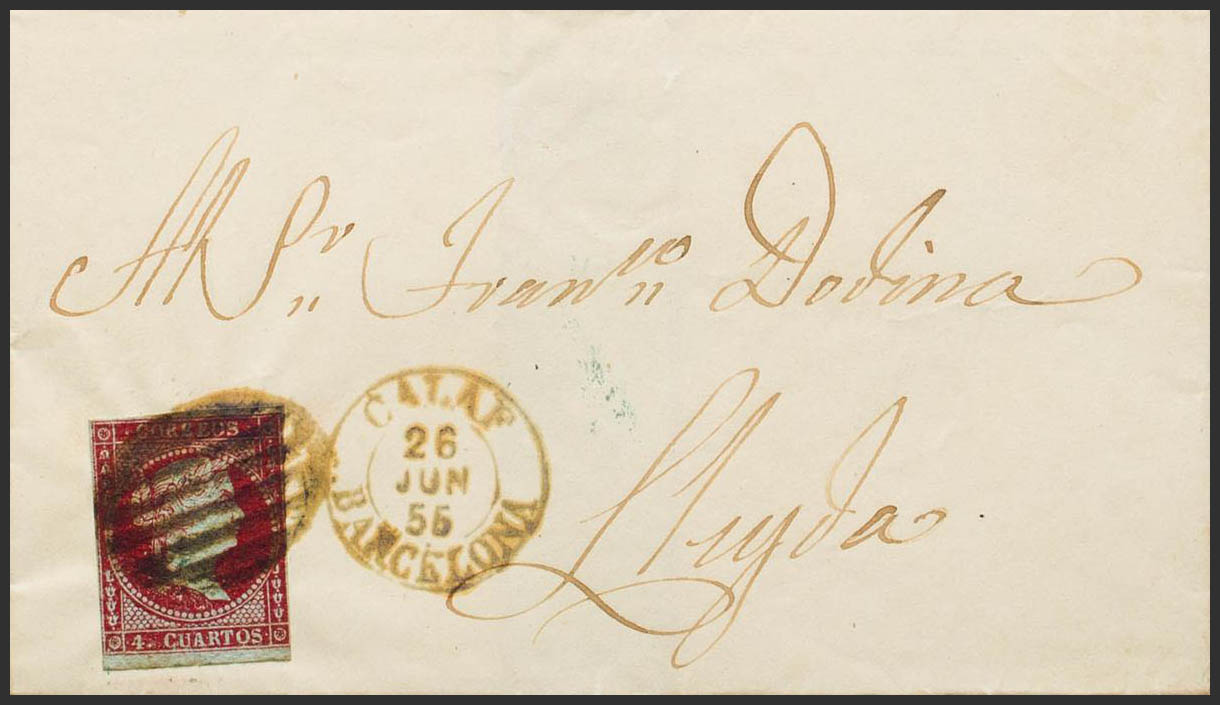 Al Sr. Franco Dodina
Lleyda
CORREOS
4 CUARTOS
CALAF
26
JUN
55
BARCELONA